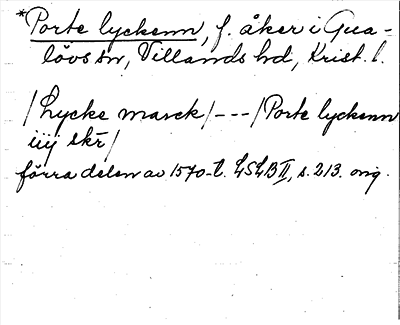 *Porte lyckenn, f. åker i Gua-
lövs sn, Villands hd, Krist. l.
/Lycke marck/---/Porte lyckenn
iiij skr/
förra delen av 1570-t. LSLB II, s. 213. orig.